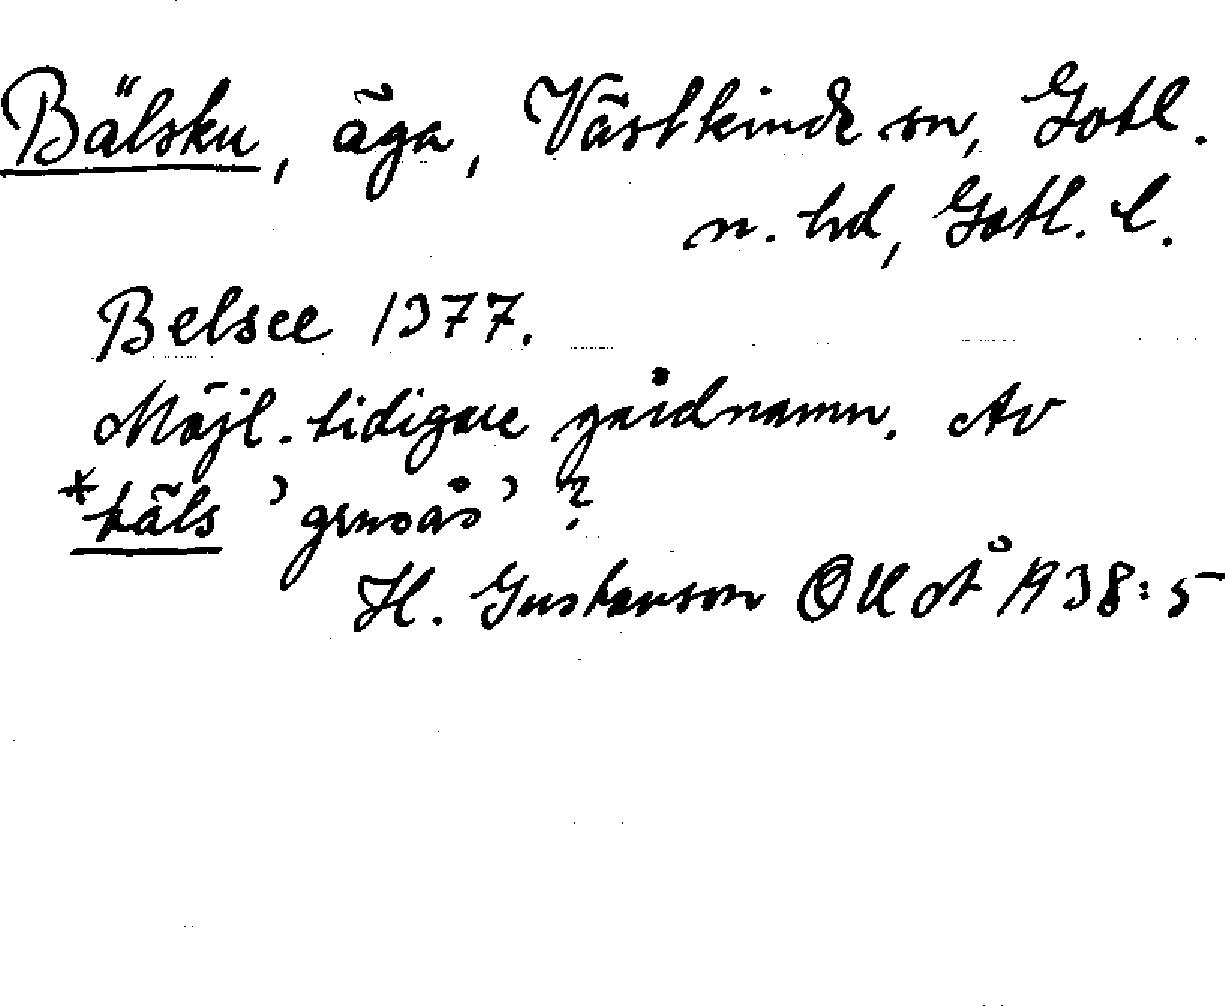 Bälsku, äga, Västkinde sn, Gotl.
n. hd, Gotl. l.
Belsee 1377.
Möjl. tidigare gårdnamn. Av
*bäls 'grusås'?
H. Gustavson GUOÅ 1938:5